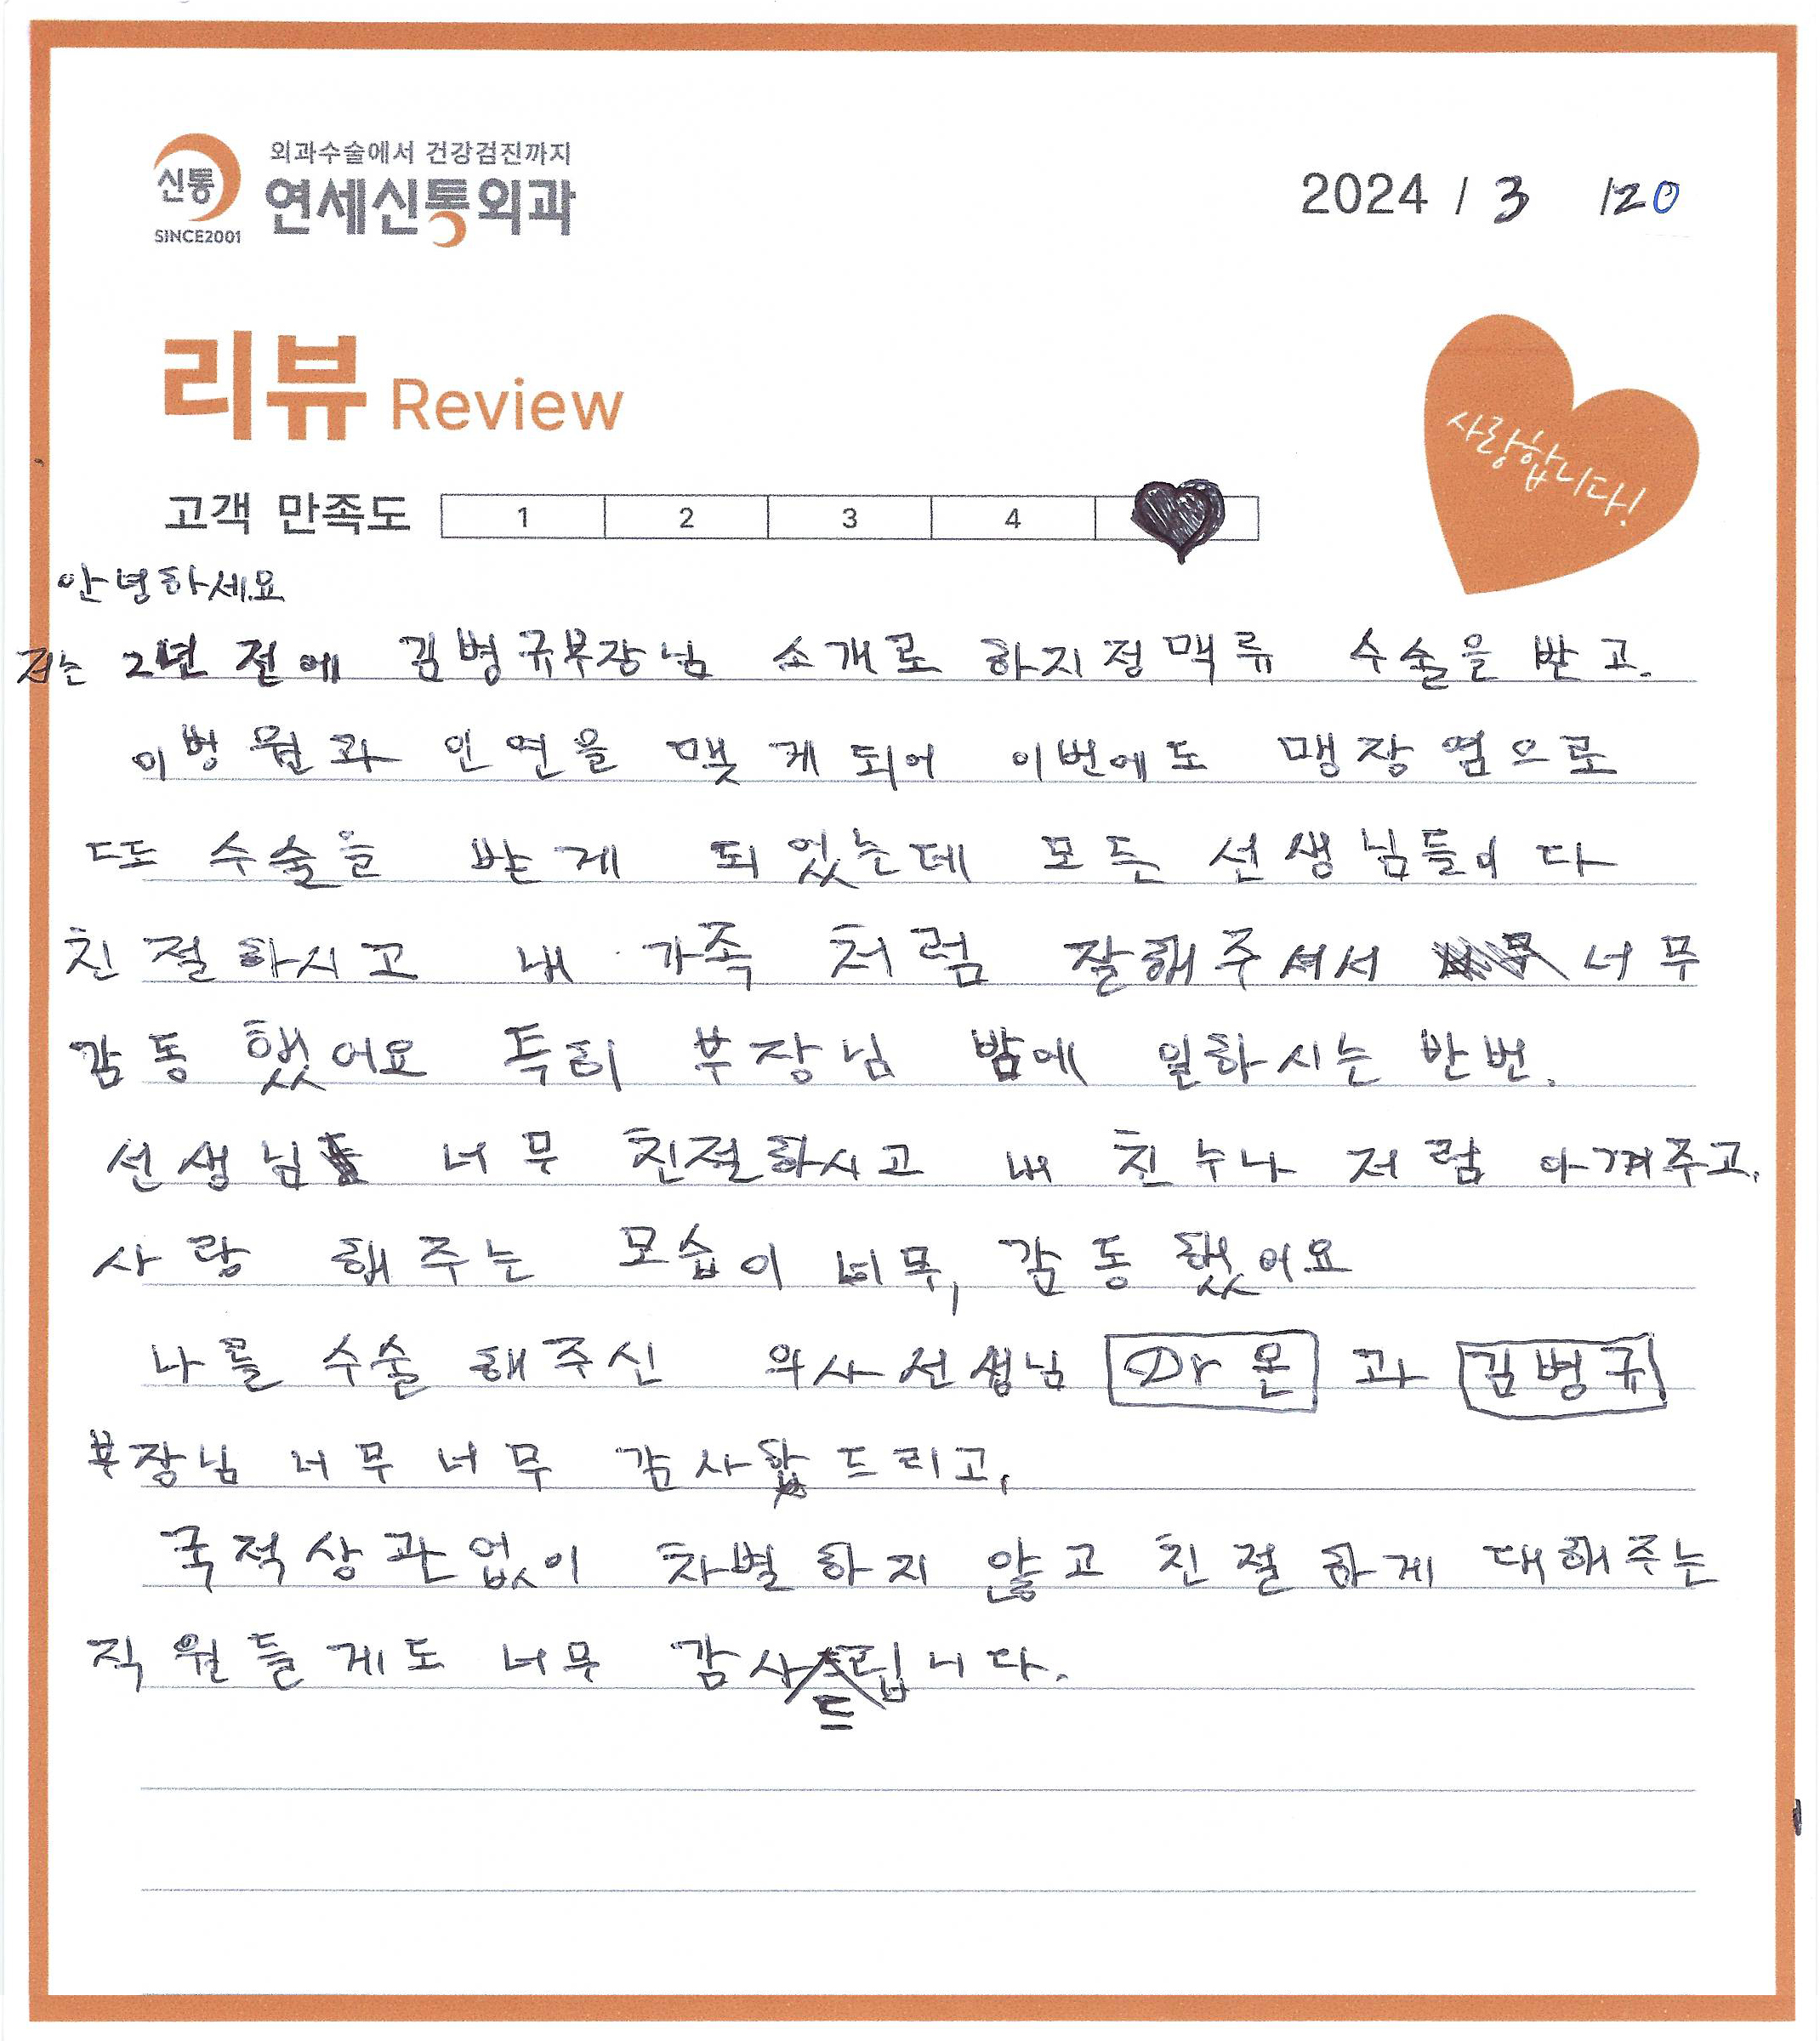 외과수술에서 건강검진까지
신통 연세신통외과
SINCE2001
2024 / 3 /20
리뷰 Review
사랑합니다!
고객 만족도 1 2 3 4
안녕하세요
저는 2년 전에 김병규부장님 소개로 하지정맥류 수술을 받고.
이병원과 인연을 맺게되어 이번에도 맹장염으로
또 수술을 받게 되었는데 모든 선생님들이 다
친절하시고 내 가족 처럼 잘해주셔서 너무
감동 했어요 특히 부장님 밤에 일하시는 반번.
선생님 너무 친절하시고 내 친누나 저럼 아껴주고,
사랑 해주는 모습이 너무, 감동했어요
나를 수술 해주신 의사선생님 Dr 온 과 김병규
부장님 너무너무 감사합 드리고,
국적상관없이 차별하지 않고 친절하게 대해주는
직원들게도 너무 감사드립니다.